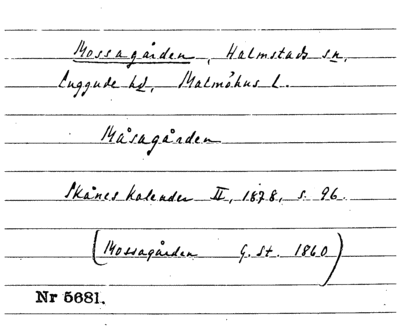 Mossagården, Halmstads sn,
Luggude hd, Malmöhus l.
Måsagården
Skånes kalender II, 1878, s. 96.
(Mossagården G. St. 1860)
Nr 5681.